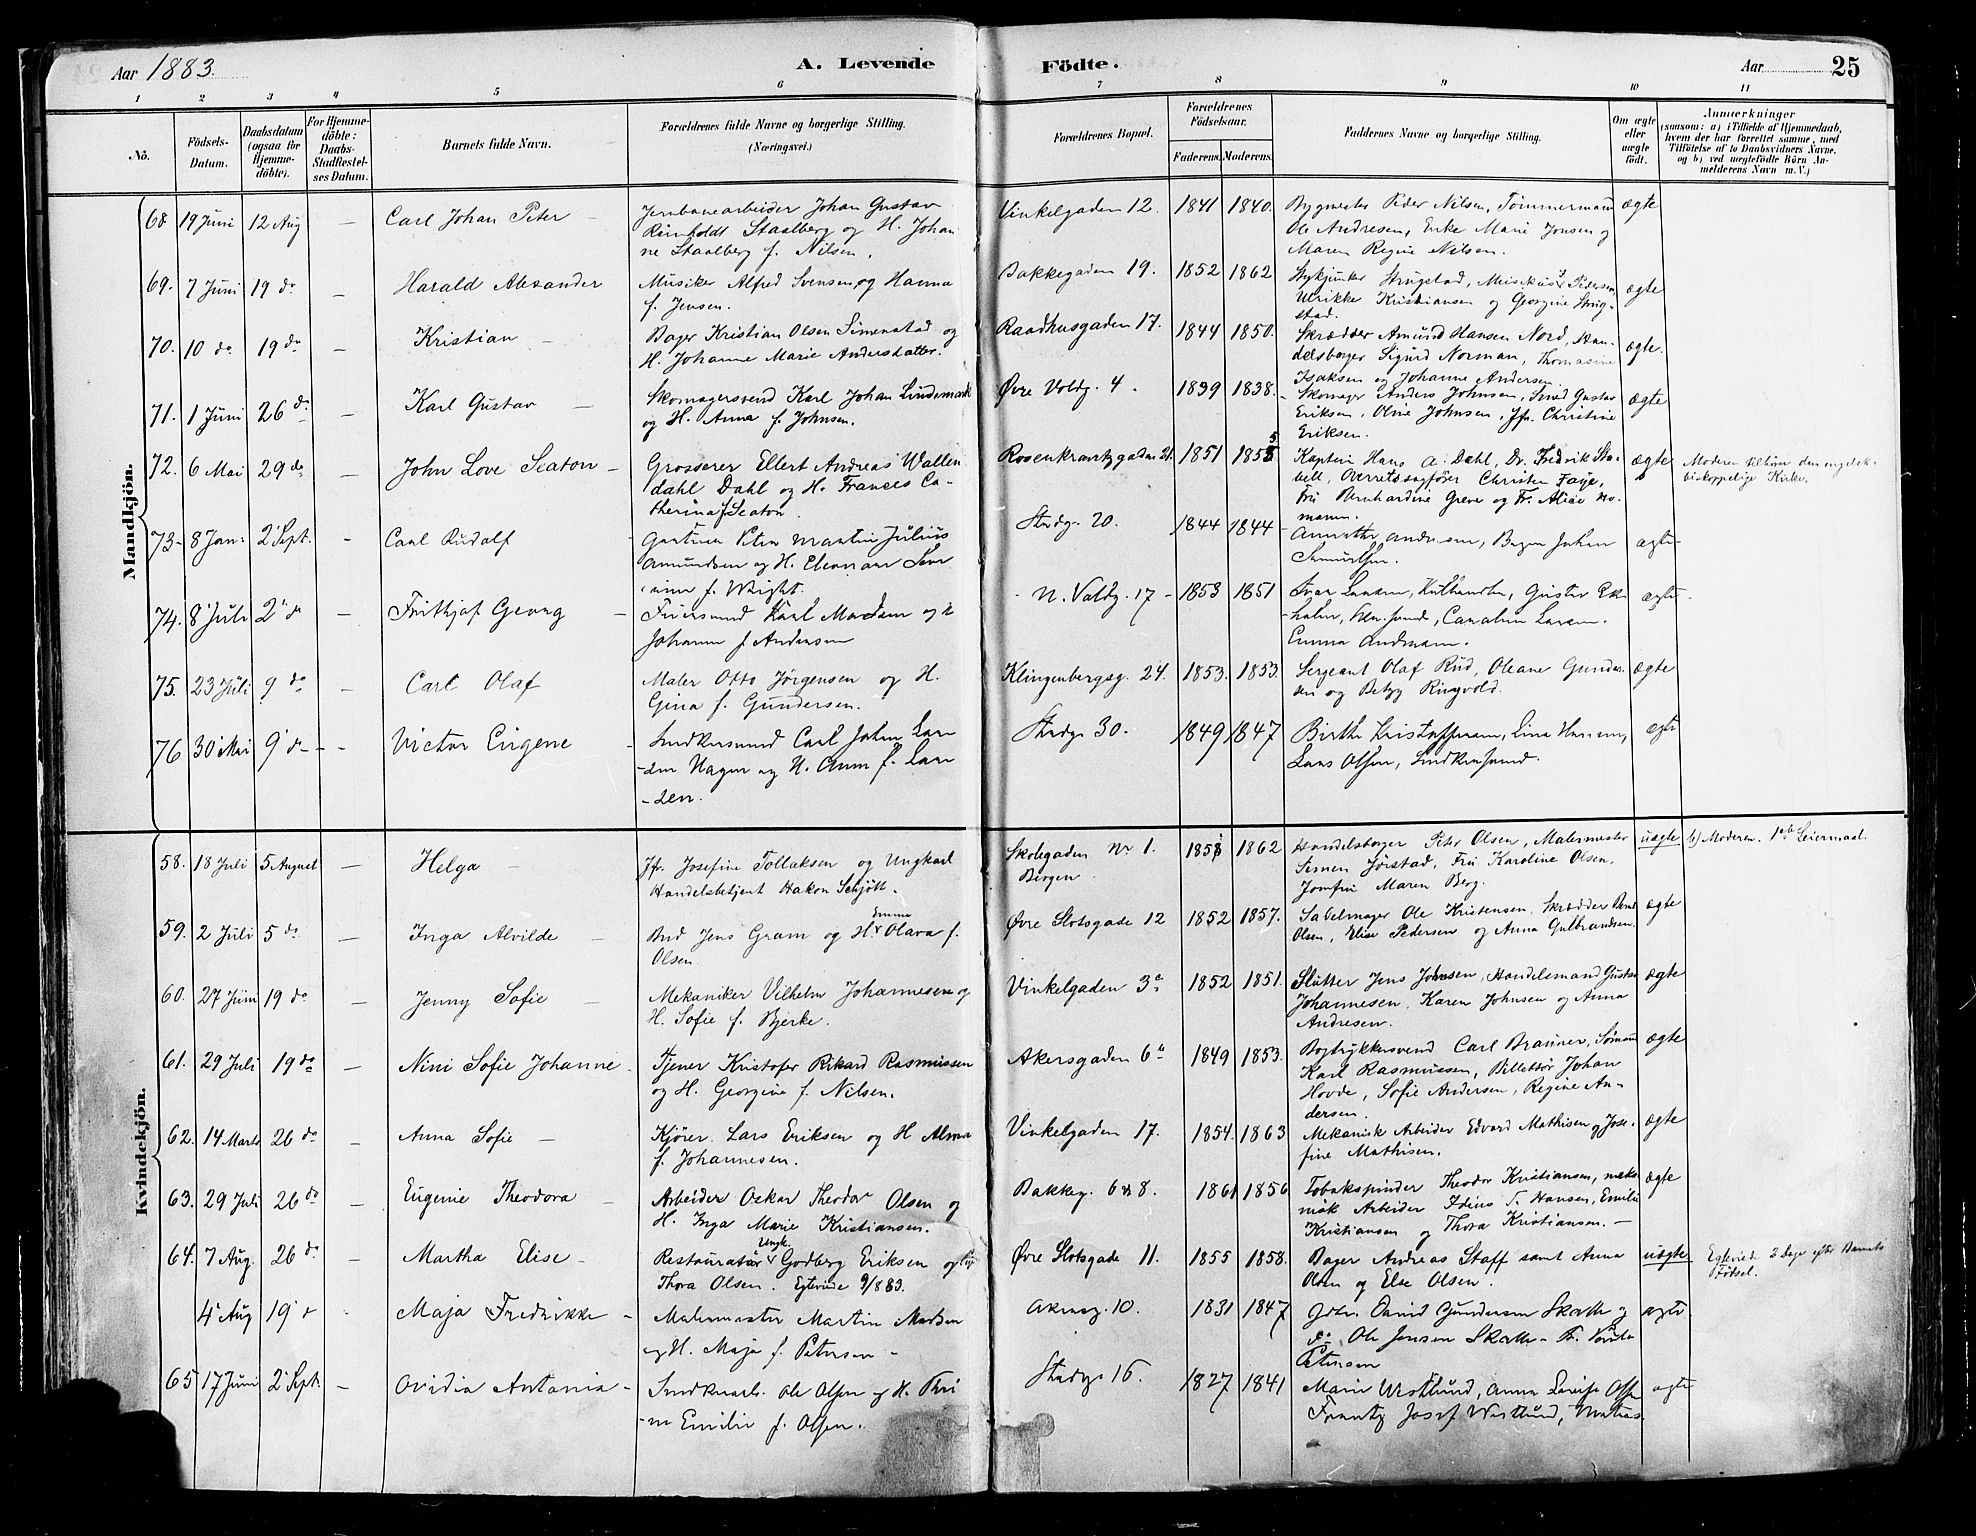 Aar 1883.
A. Levende Födte.
Aar 25
1 2 3 4 5 6 7 8 9 10 11
Nö.
Födsels-Datum.
Daabsdatum (ogsaa for Hjemme-döbte).
For Hjemme-döbte: Daabs-Stadfæstel-ses Datum.
Barnets fulde Navn.
Forældrenes fulde Navne og borgerlige Stilling. (Næringsvei.)
Forældrenes Bopæl.
Forældrenes Födselsaar.
Faderens. Moderens.
Faddernes Navne og borgerlige Stilling.
Om ægte eller uægte födt.
Anmærkninger
(saasom: a) i Tilfælde af Hjemmedaab,
hvem der har forrettet samme, med
Tilföielse af to Daabsvidners Navne.
og b) ved uægtefödte Börn An-
melderens Navn m. V.)
Mandkjön.
68 19 Juni 12 Aug — Carl Johan Peter — Jernbanearbeider Johan Gustav
Reinholdt Staalberg og H. Johan
ne Staalberg f. Nilsen.
Vinkelgaden 12. 1841 1840. Bygmester Peder Nilsen, Tømmermand
Ole Andresen, Enke Marie Jensen og
Maren Regine Nilsen.
ægte
69. 7 Juni 19 do — Harald Alexander Musiker Alfred Svensen og Hanna
f. Jensen.
Bakkegaden 19. 1852 1862 Stykjunker Strugstad, Musikus Pedersen
Ulrikke Kristiansen og Georgine Strug-
stad.
ægte
70. 10 do 19 do — Kristian — Bager Kristian Olsen Simenstad og
H. Johanne Marie Andersdatter.
Raadhusgaden 17. 1844 1850. Skrædder Amund Hansen Nord, Han-
delsborger Sigurd Norman, Thomasine
Isaksen og Johanne Andersen.
ægte.
71. 1 Juni 26 do — Karl Gustav — Skomagersvend Karl Johan Lindemark
og H. Anna f. Johnsen.
Øvre Voldg. 4. 1839 1838. Skomager Anders Johnsen, Smed Gustav
Eriksen, Oline Johnsen, Jfr. Christine
Eriksen.
ægte
72. 6 Mai 29 do — John Love Seaton — Grosserer Ellert Andreas Wallen
dahl Dahl og H. Frances Ca-
therina f. Seaton.
Rosenkrantzgaden 21. 1851 1855 Kaptein Hans A. Dahl, Dr. Fredrik
Overretssagfører Christen Faye,
Fru Bernhardine Greve og Fr. Alice No-
mann.
ægte Moderen tilhører den engelsk
biskoppelige Kirke.
73 8 Jan: 2 Sept. - Carl Rudolf Gartner Peter Martin Julius
Amundsen og H. Eleonore
f. Wright.
Stredg. 20. 1844 1844 Annette Andresen, Bager Johan
Samuelsen.
ægte
74. 8 Juli 2 d — Frithjof Georg Karl Madsen og H
Johanne f. Andersen
N. Voldg. 17 - 1853 1851 Ivar Larsen, Gustav Ek-
holm, Caroline Larsen.
Emma Andresen.
ægte
75. 23 Juli 9 do — Carl Olaf Maler Otto Jørgensen og H.
Gina f. Gundersen.
Klingenbergsg. 24. 1853. 1853. Sergeant Olaf Rud, Oleane Gunder-
sen og Betzy Ringvold.
ægte
76 30 Mai 9 d - - Victor Eugene - Snedkersvend Carl Johan Lar
og H. Anna f. Lar
Stredg. 30. 1849 1847 Birthe Kristoffersen, Lina Hansen,
Lars Olsen, Snedkersvend.
ægte
Kvindekjön.
58. 18 Juli 5 August — Helga Jfr. Josefine Tollaksen og Ungkarl
Handelsbetjent Hakon Schjøtt.
Skolegaden Nr 1.
Bergen.
1858 1862 Handelsborger Peter Olsen, Malermester
Simen Jørstad, Fru Karoline Olsen,
Jomfru Maren Berg.
uægte b) Moderen. 1ste Leiermaal.
59. 2 Juli 5 do — Inga Alvilde — Bud Jens Gram og H. Emma Olava f.
Olsen.
Øvre Slotsgade 12 1852 1857. Sabelmager Ole Kristensen, Skrædder
Olsen, Elise Pedersen og Anna Gulbrandsen.
ægte
60. 27 Juni 19 do — Jenny Sofie — Mekaniker Vilhelm Johannesen og
H. Sofie f. Bjerke.
Vinkelgaden 3a 1852 1851. Slutter Jens Johnsen, Handelsmand Gustav
Johannesen, Karen Johnsen og Anna
Andresen.
ægte
61. 29 Juli 19 do — Nini Sofie Johanne — Tjener Kristofer Rikard Rasmussen
og H. Georgine f. Nilsen.
Akersgaden 6a 1849 1853. Bogtrykkersvend Carl Brauner, Sømand
Karl Rasmussen, Billettør Johan
Hovde, Sofie Andersen, Regine An-
dersen.
ægte
62. 14 Marts 26 do — Anna Sofie — Kjører Lars Eriksen og H Alma
f. Johannesen.
Vinkelgaden 17. 1854. 1863 Mekanisk Arbeider Edvard Mathisen og Jose-
fine Mathisen.
ægte
63. 29 Juli 26 do — Eugenie Theodora — Arbeider Oskar Theodor Olsen og
H. Inga Marie Kristiansen.
Bakkeg. 6 & 8. 1861 1856 Tobakspinder Theodor Kristiansen, meka
nisk Arbeider T. Hansen, Emilie
Kristiansen og Thora Kristiansen. —
ægte
64. 7 Aug. 26 do — Martha Elise — Restauratør Ungk. Godberg Eriksen og
Thora Olsen. Egteviede 9/8 83.
Øvre Slotsgade 11. 1855 1858. Bager Andreas Staff samt Anna
Olsen og Else Olsen.
uægte Egteviede 2 dage efter Barnets
Fødsel.
4 Aug 19 d Maja Fredrikke - Malermester Martin Madsen
og H. Maja f. Petersen -
Akersg. 10. 1831 1847 Gundersen og
do Ole Jensen
Petersen
ægte
65 17 Juni 2 Sept. — Ovidia Antonia - Ole Olsen og H.
Emilie f. Olsen.
Stredg. 16. 1827 1841 Marie Westlund, Anna Lovise Olsen
Frantz Josef Westlund,
ægte